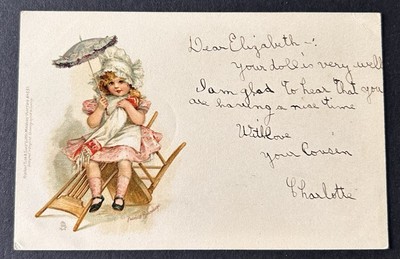 Dear Elizabeth -:
Your doll is very well
I am glad to hear that you
are having a nise time
With love
your Cousin
Charlotte